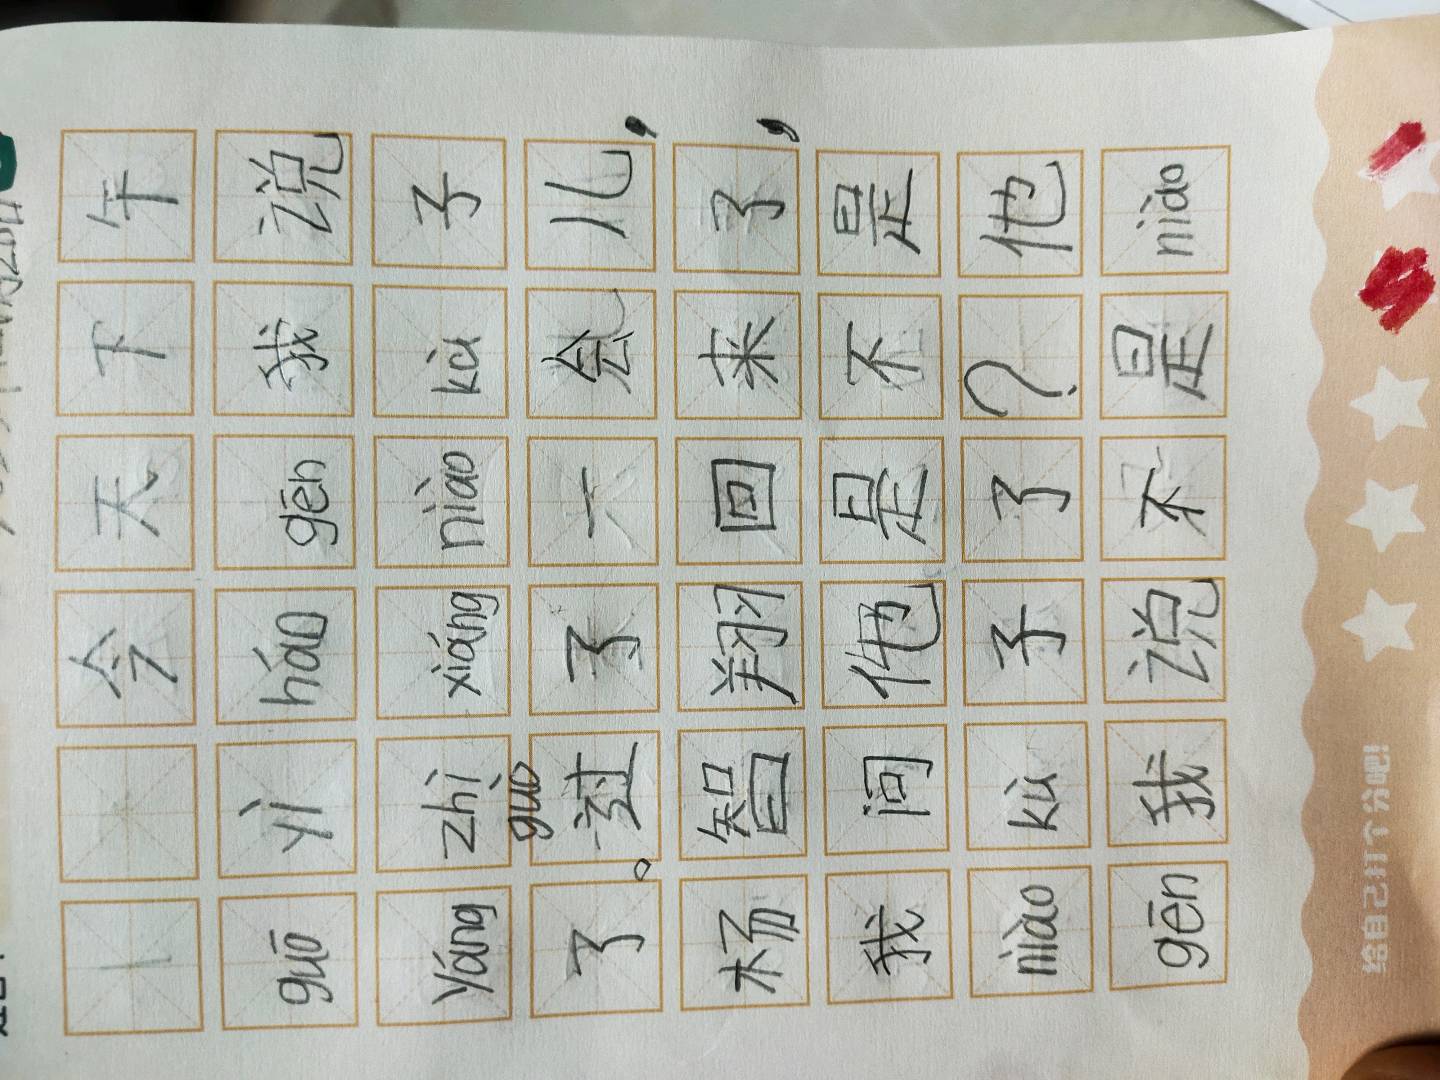 今天下午
guō yì háo gēn 我说
yáng zhì xiáng niào kù 子
guò
了。过了一会儿,
杨智翔回来了,
我问他是不是
niào kù 子了?他
gēn 我说不是 niào
给自己打个分吧